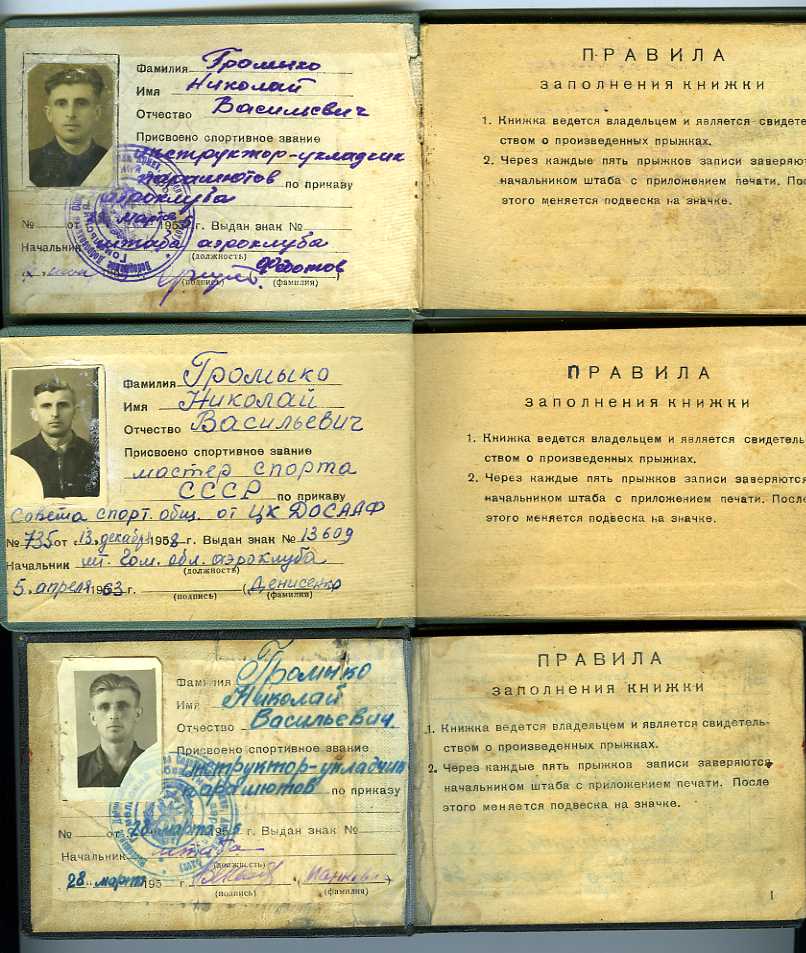 Фамилия Громыко
Имя Николай
Отчество Васильевич
Присвоено спортивное звание
инструктор-укладчик
парашютов по приказу
аэроклуба
№ от марта 195 г. Выдан знак №
Начальник штаба аэроклуба
(должность)
Федотов
(подпись) (фамилия)
ПРАВИЛА
заполнения книжки
1. Книжка ведется владельцем и является свидете
ством о произведенных прыжках.
2. Через каждые пять прыжков записи заверяютс
начальником штаба с приложением печати. Пос
этого меняется подвеска на значке.
Фамилия Громыко
Имя Николай
Отчество Васильевич
Присвоено спортивное звание
мастер спорта
СССР по приказу
Совета спорт. общ. от ЦК ДОСААФ
№ 735 от 13 декабря 1958 г. Выдан знак № 13609
Начальник шт. Гом. обл. аэроклуба
(должность)
5. апреля 1963 г. (Денисенко
(подпись) (фамилия)
ПРАВИЛА
заполнения книжки
1. Книжка ведется владельцем и является свидетель
ством о произведенных прыжках.
2. Через каждые пять прыжков записи заверяются
начальником штаба с приложением печати. После
этого меняется подвеска на значке.
Фамилия Громыко
Имя Николай
Отчество Васильевич
Присвоено спортивное звание
инструктор-укладчик
парашютов по приказу
№ от 28 марта 195 г. Выдан знак №
Начальник штаба
(должность)
28 марта 195 г.
(подпись) (фамилия)
ПРАВИЛА
заполнения книжки
1. Книжка ведется владельцем и является свидетель-
ством о произведенных прыжках.
2. Через каждые пять прыжков записи заверяются
начальником штаба с приложением печати. После
этого меняется подвеска на значке.
1